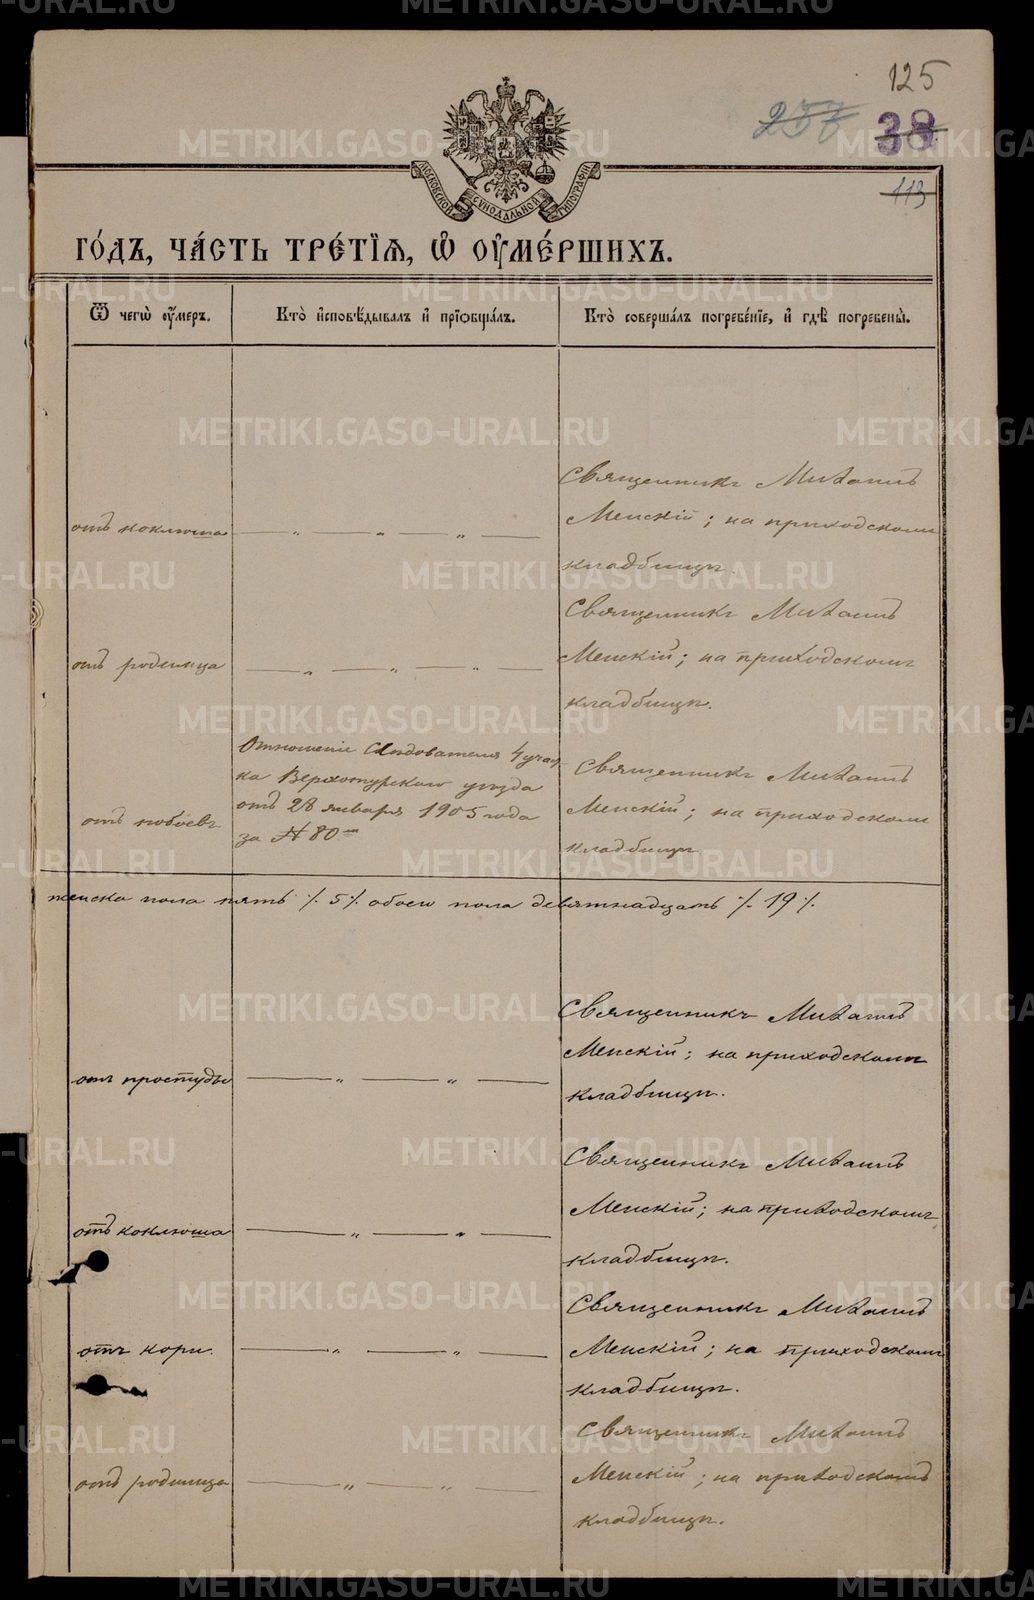 125
257 38
113
МОСКОВСКОЙ СѴНОДАЛЬНОЙ ТИПОГРАФІИ
ГО́ДЪ, ЧА́СТЬ ТРЕ́ТІѦ, Ѽ ОУМЕ́РШИХЪ.
Ѿ чегѡ̀ оу҆́меръ.
Кто̀ и҆сповѣ́дывалъ и҆ прїѡбща́лъ.
Кто̀ соверша́лъ погребе́нїе, и҆ гдѣ̀ погребены̀.
отъ коклюша
Священникъ Михаилъ
Менскій; на приходскомъ
кладбищѣ.
отъ родимца
Священникъ Михаилъ
Менскій; на приходскомъ
кладбищѣ.
отъ побоевъ
Отношеніе Слѣдователя 4 участ-
ка Верхотурскаго уѣзда
отъ 28 января 1905 года
за № 80
Священникъ Михаилъ
Менскій; на приходскомъ
кладбищѣ
женска пола пять /. 5 /. обоего пола девятнадцать /. 19 /.
отъ простуды
Священникъ Михаилъ
Менскій; на приходскомъ
кладбищѣ.
отъ коклюша
Священникъ Михаилъ
Менскій; на приходскомъ
кладбищѣ.
отъ кори.
Священникъ Михаилъ
Менскій; на приходскомъ
кладбищѣ.
отъ родимца
Священникъ Михаилъ
Менскій; на приходскомъ
кладбищѣ.
METRIKI.GASO-URAL.RU